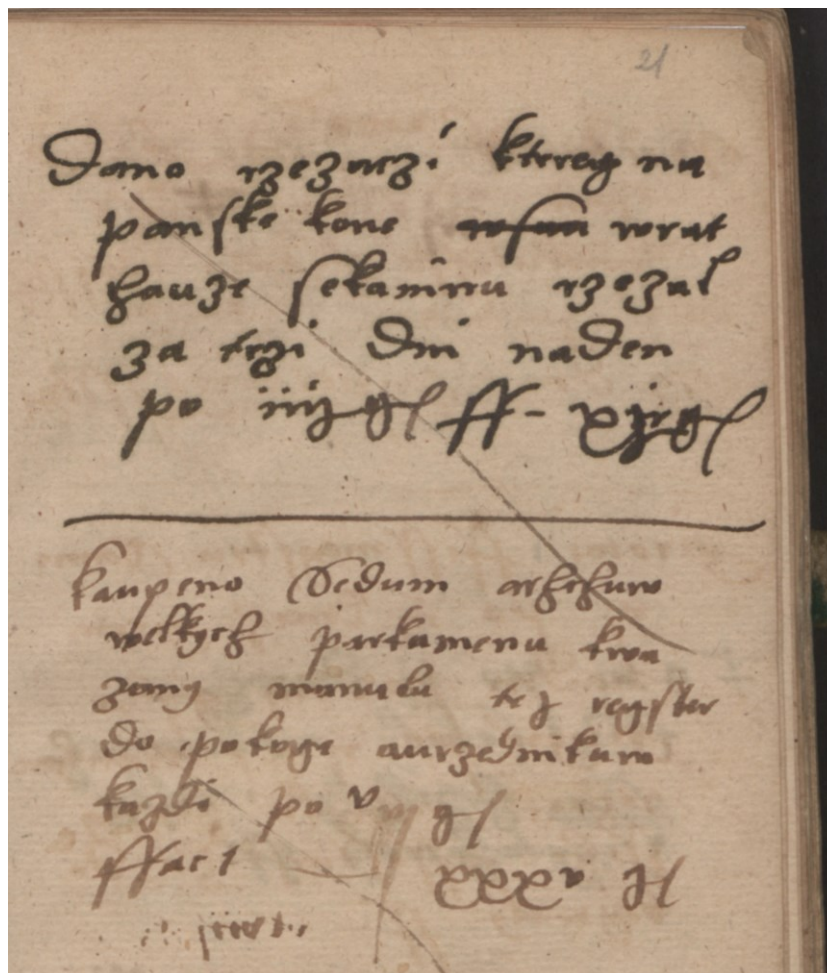 21
Dano rzezaczi ktereg na
panske kone wrat
hauze sekaninu rzezal
za trzi dni naden
po iiij gl ff - xij gl
kaupeno Sedum arhchuw
welkych parkamenu kwa
zany manualu tez regster
do pokoge aurzednikuw
kazdi po v gl
ffacit xxxv gl